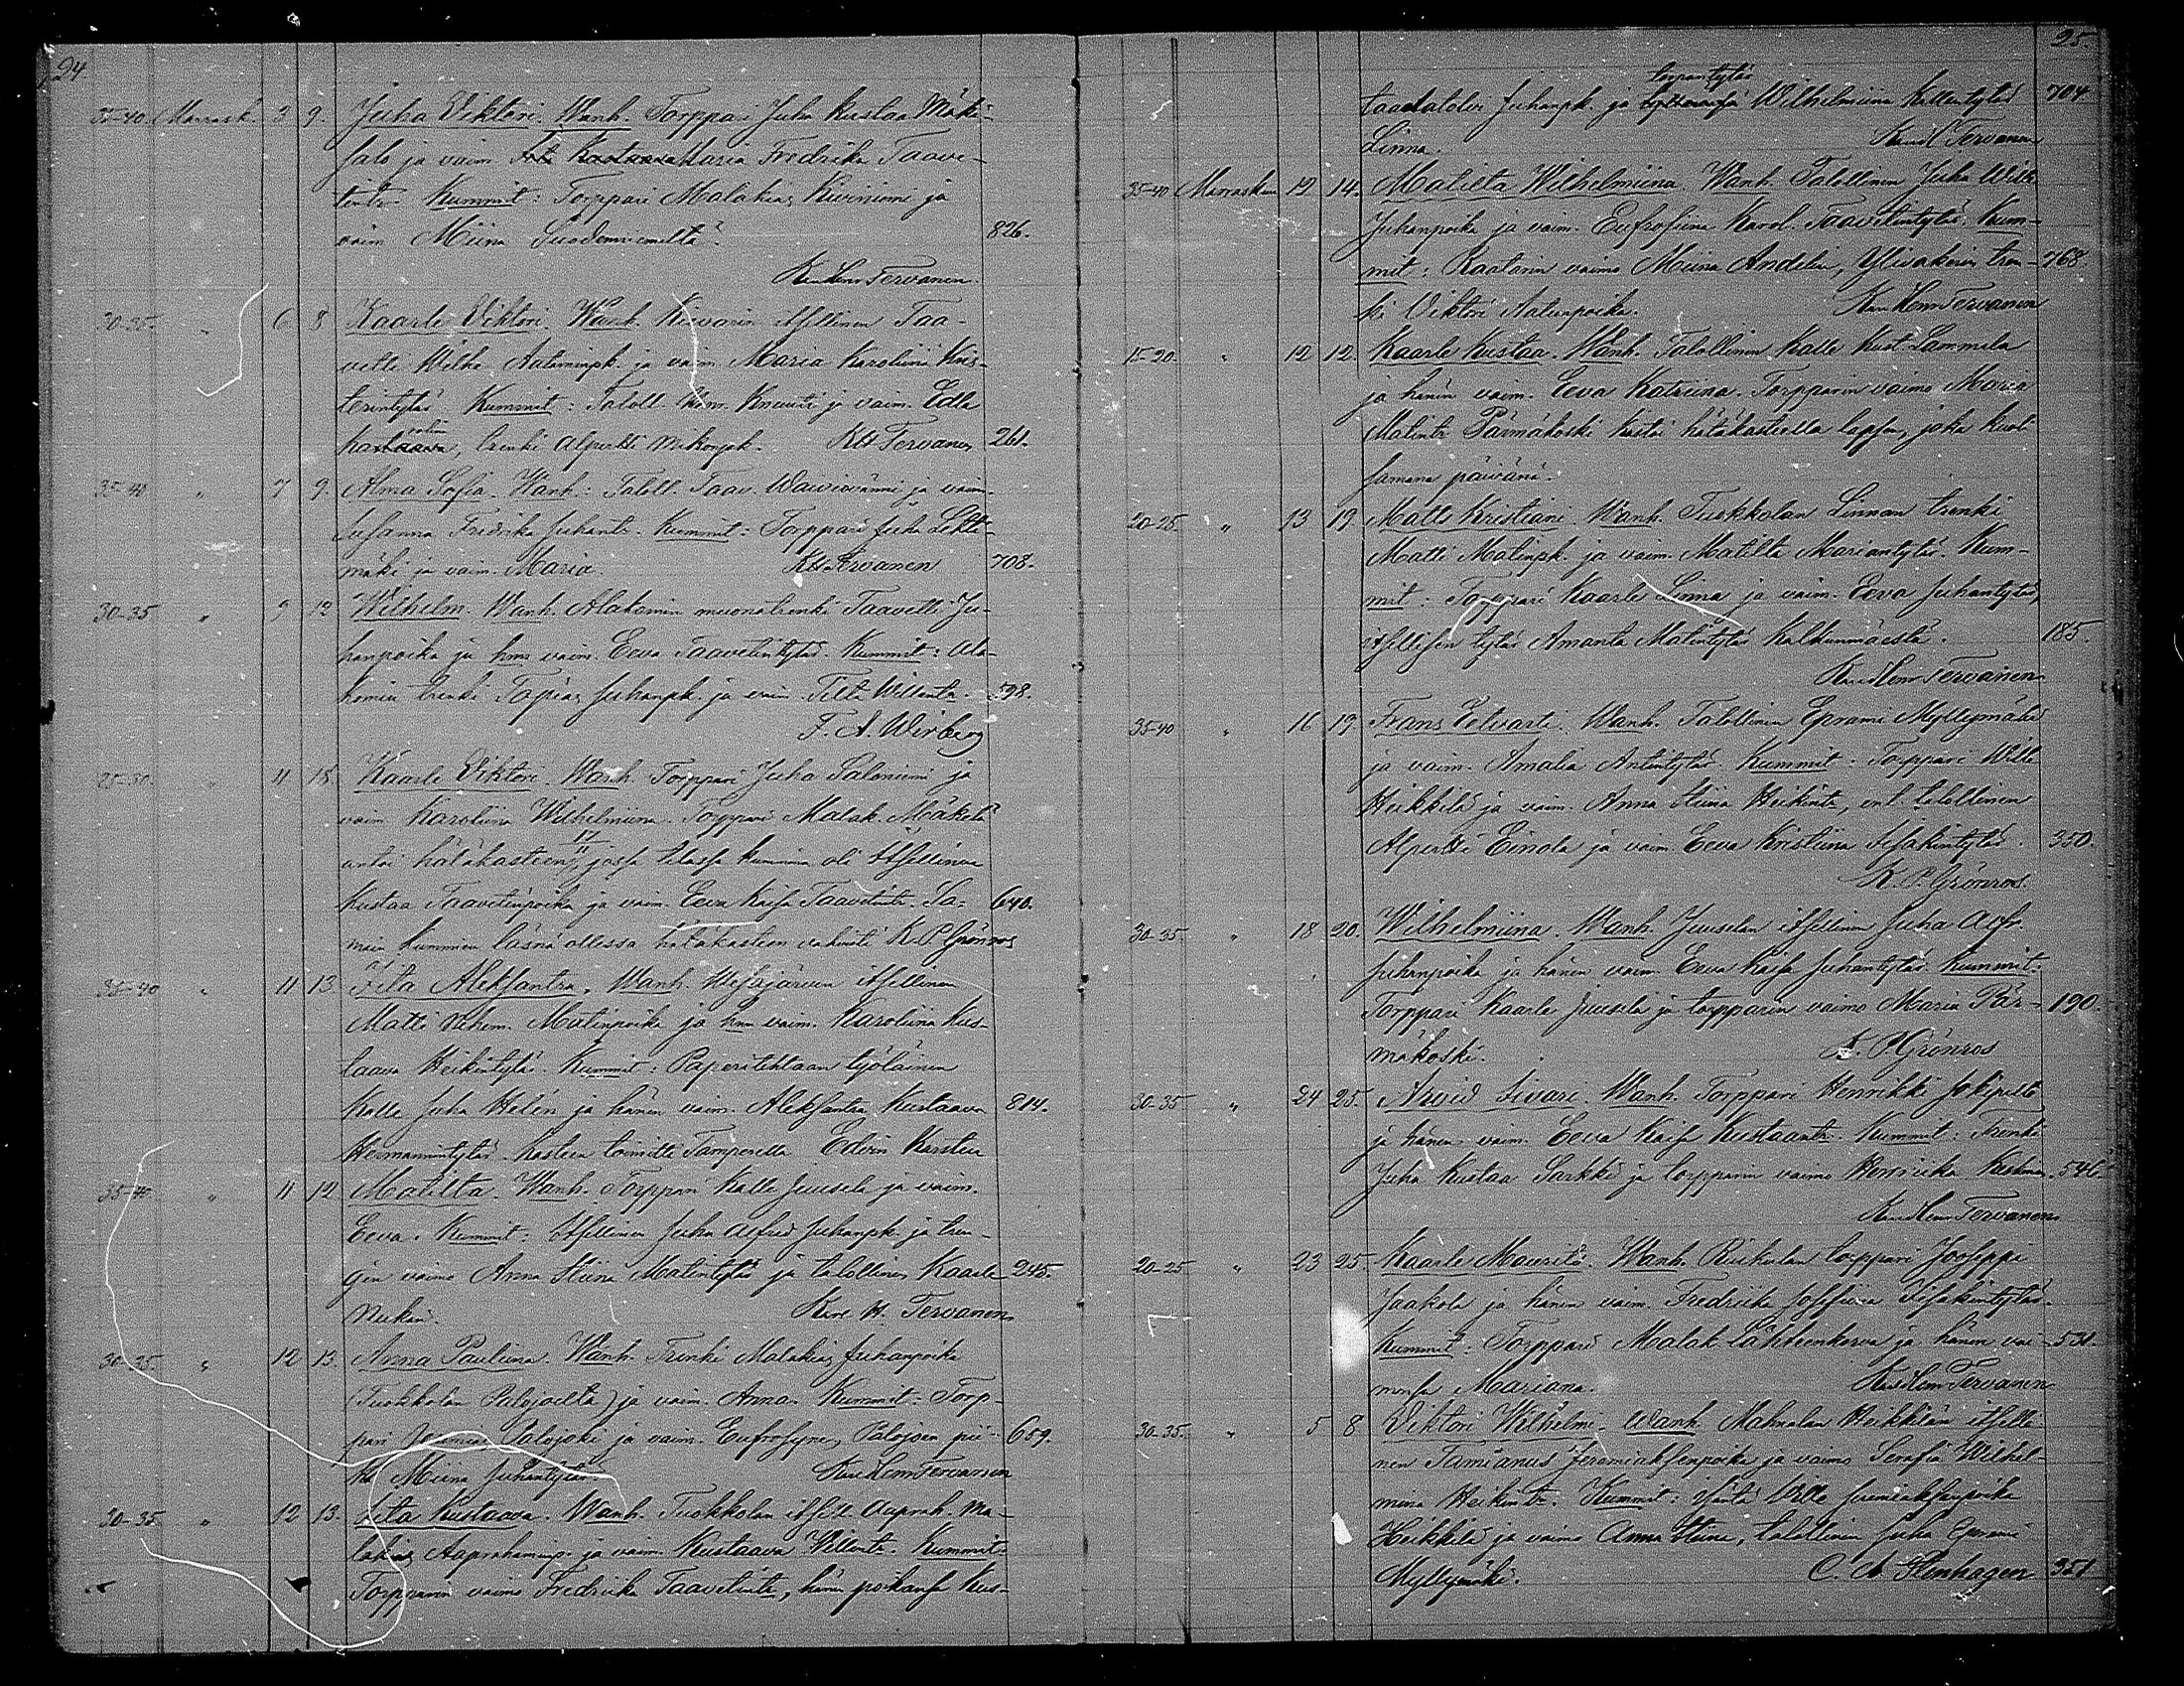 24
35-40 Marrask. 3 9. Juha Viktori. Wanh. Torppari Juha Kustaa Mäki-
salo ja vaim. Maria Fredrika Taave-
tintr. Kummit: Torppari Malakias Kiviniemi ja
vaim Miina Suodenniemeltä. 826.
Kaa Hem Tervanen.
30-35. " 6 8 Kaarle Viktori. Wanh. itsellinen Taa-
vetti Wilhe. ja vaim. Maria Karoliina Kris-
terintytär Kummit: Taloll. Herm. Knuuti ja vaim. Edla
, trenki Alpertti Mikonpk. KH Tervanen 261.
35-40 " 7 9. Alma Sofia. Wanh.: Taloll. Taav. ja vaim.
Susanna Fredrika Juhantr. Kummit: Torppari Juha Lehti-
mäki ja vaim. Maria. KH Tervanen 708.
30-35 " 9 12 Wilhelm. Wanh. Alakomin muonatrenki Taavetti Ju-
hanpoika ja hms vaim. Eeva Taavetintytär. Kummit: Ala-
komin trenki Tapias Juhanpk. ja vaim. Tilta Willentr. 598.
F. A. Wirberg
25-30. " 11 15. Kaarle Viktori. Wanh. Torppari Juha Saloniemi ja
vaim Karoliina Wilhelmiina. Torppari Malak. Mäkelä
antoi hätäkasteen 17/11, jossa tilassa kummina oli Itsellinen
Kustaa Taavetinpoika ja vaim. Eeva Kaisa Taavetintr. Sa- 640.
main kummien läsnä ollessa hätäkasteen vahvisti K. P. Grönros
35-40 " 11 13. Fita Aleksantra. Wanh. Wesajärven itsellinen
Matti Vihem. Matinpoika ja hms vaim. Karoliina Kus-
taava Heikintytär. Kummit: Paperitehtaan työläinen
Kalle Juha Helén ja hänen vaim. Aleksantra Kustaava 814.
Hermannintytär. Kasteen toimitti Tamperella Edvin Karsten
35-40. " 11 12 Matilta. Wanh. Torppari Kalle Juusela ja vaim.
Eeva. Kummit: Itsellinen Juha Alfred Juhanpk. ja tren-
gin vaimo Anna Stiina Matintytär ja talollinen Kaarle 245.
Kare H. Tervanen
30-35. " 12 13. Anna Pauliina. Wanh. Trenki Malakias Juhanpoika
(Tuokkolan Palojoelta) ja vaim. Anna. Kummit: Torp-
pari Palojoki ja vaim. Eufrosyne, Palojoen pii- 659.
ka Miina Juhantytär. Kaa Hem Tervanen
30-35 " 12 13. Fita Kustaava. Wanh. Tuokkolan itsell. Aaprah. Ma-
lakias Aaprahaminp. ja vaim. Kustaava Willentr. Kummit:
Torpparin vaimo Fredriika Taavetintr, hänen poikansa Kus-
25.
torpantytär
taa Juhanpk. ja Wilhelmiina Kallentytär 704.
Linna. Kaa H Tervanen
35-40 Marraskuu 12 14. Matilta Wilhelmiina. Wanh. Talollinen Juha Wilh.
Juhanpoika ja vaim. Eufrosiina Karol. Taavetintytär. Kum-
mit: Raatarin vaimo Miina Andelin, Ylisakeen tren- 768.
ki Viktori Antinpoika. Kaa Hem Tervanen
15-20. " 12 12. Kaarle Kustaa. Wanh. Talollinen Kalle Kust. Lammela
ja hänen vaim. Eeva Katriina. Torpparin vaimo Maria
Matintr Pärmäkoski kastoi hätäkasteella lapsen, joka kuoli
samana päivänä.
20-25 " 13 19. Matts Kristiani. Wanh. Tuokkolan Linnan trenki
Matti Matinpk. ja vaim. Matilta Mariantytär. Kum-
mit: Torppari Kaarle Linna ja vaim. Eeva Juhantytär,
itsellisen tytär Amanta Matintytär Kalkunmäestä. 185.
Kaa Hem Tervanen
35-40 " 16 19. Frans Eetvarti. Wanh. Talollinen Eprami Myllymäki
ja vaim. Amalia Antintytär. Kummit: Torppari Wille
Heikkilä ja vaim. Anna Stiina Heikintr, ent. talollinen
Alpertti Einola ja vaim. Eeva Kristiina Iisakintytär. 350.
K. P. Grönros.
30-35. " 18 20. Wilhelmiina. Wanh. Juuselan itsellinen Juha Alfr.
Juhanpoika ja hänen vaim. Eeva Kaisa Juhantytär Kummit:
Torppari Kaarle Juusela ja torpparin vaimo Maria Pär- 190.
mäkoski. K. P. Grönros
30-35 " 24 25. Arvid Iivari. Wanh. Torppari Henrikki Jokipelto
ja hänen vaim. Eeva Kaisa Kustaantr. Kummit: Trenki
Juha Kustaa Sarkki ja torpparin vaimo Henriika 546.
Kaa Hem Tervanen
20-25 " 23 25. Kaarle Mauritz. Wanh. Ruikalan torppari Jooseppi
Jaakola ja hänen vaim. Fredriika Josefiina Iisakintytär.
Kummit: Torppari Malak Lähteenkorva ja hänen vai- 531.
monsa Mariana. Kaa Hem Tervanen
30-35. " 5 8 Viktori Wilhelmi. Wanh. Mahnalan Heikkilän itselli-
nen Tamianus Jeremiaksenpoika ja vaimo Serafia Wilhel-
miina Heikintr. Kummit: isäntä Wille Jeremiaksenpoika
Heikkilä ja vaimo Anna Stiina, talollinen Juha Eprami
Myllymäki. C. A. Stenhagen 351